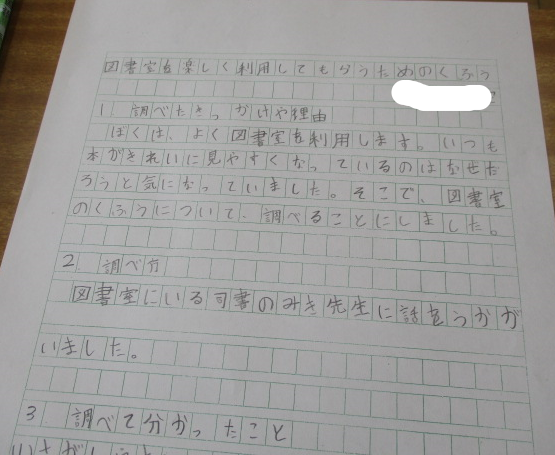 図書室を楽しく利用してもらうためのくふう
1 調べたきっかけや理由
ぼくは、よく図書室を利用します。いつも
本がきれいに見やすくなっているのはなぜだ
ろうと気になっていました。そこで、図書室
のくふうについて、調べることにしました。
2 調べ方
図書室にいる司書のみき先生に話をうかが
いました。
3 調べて分かったこと